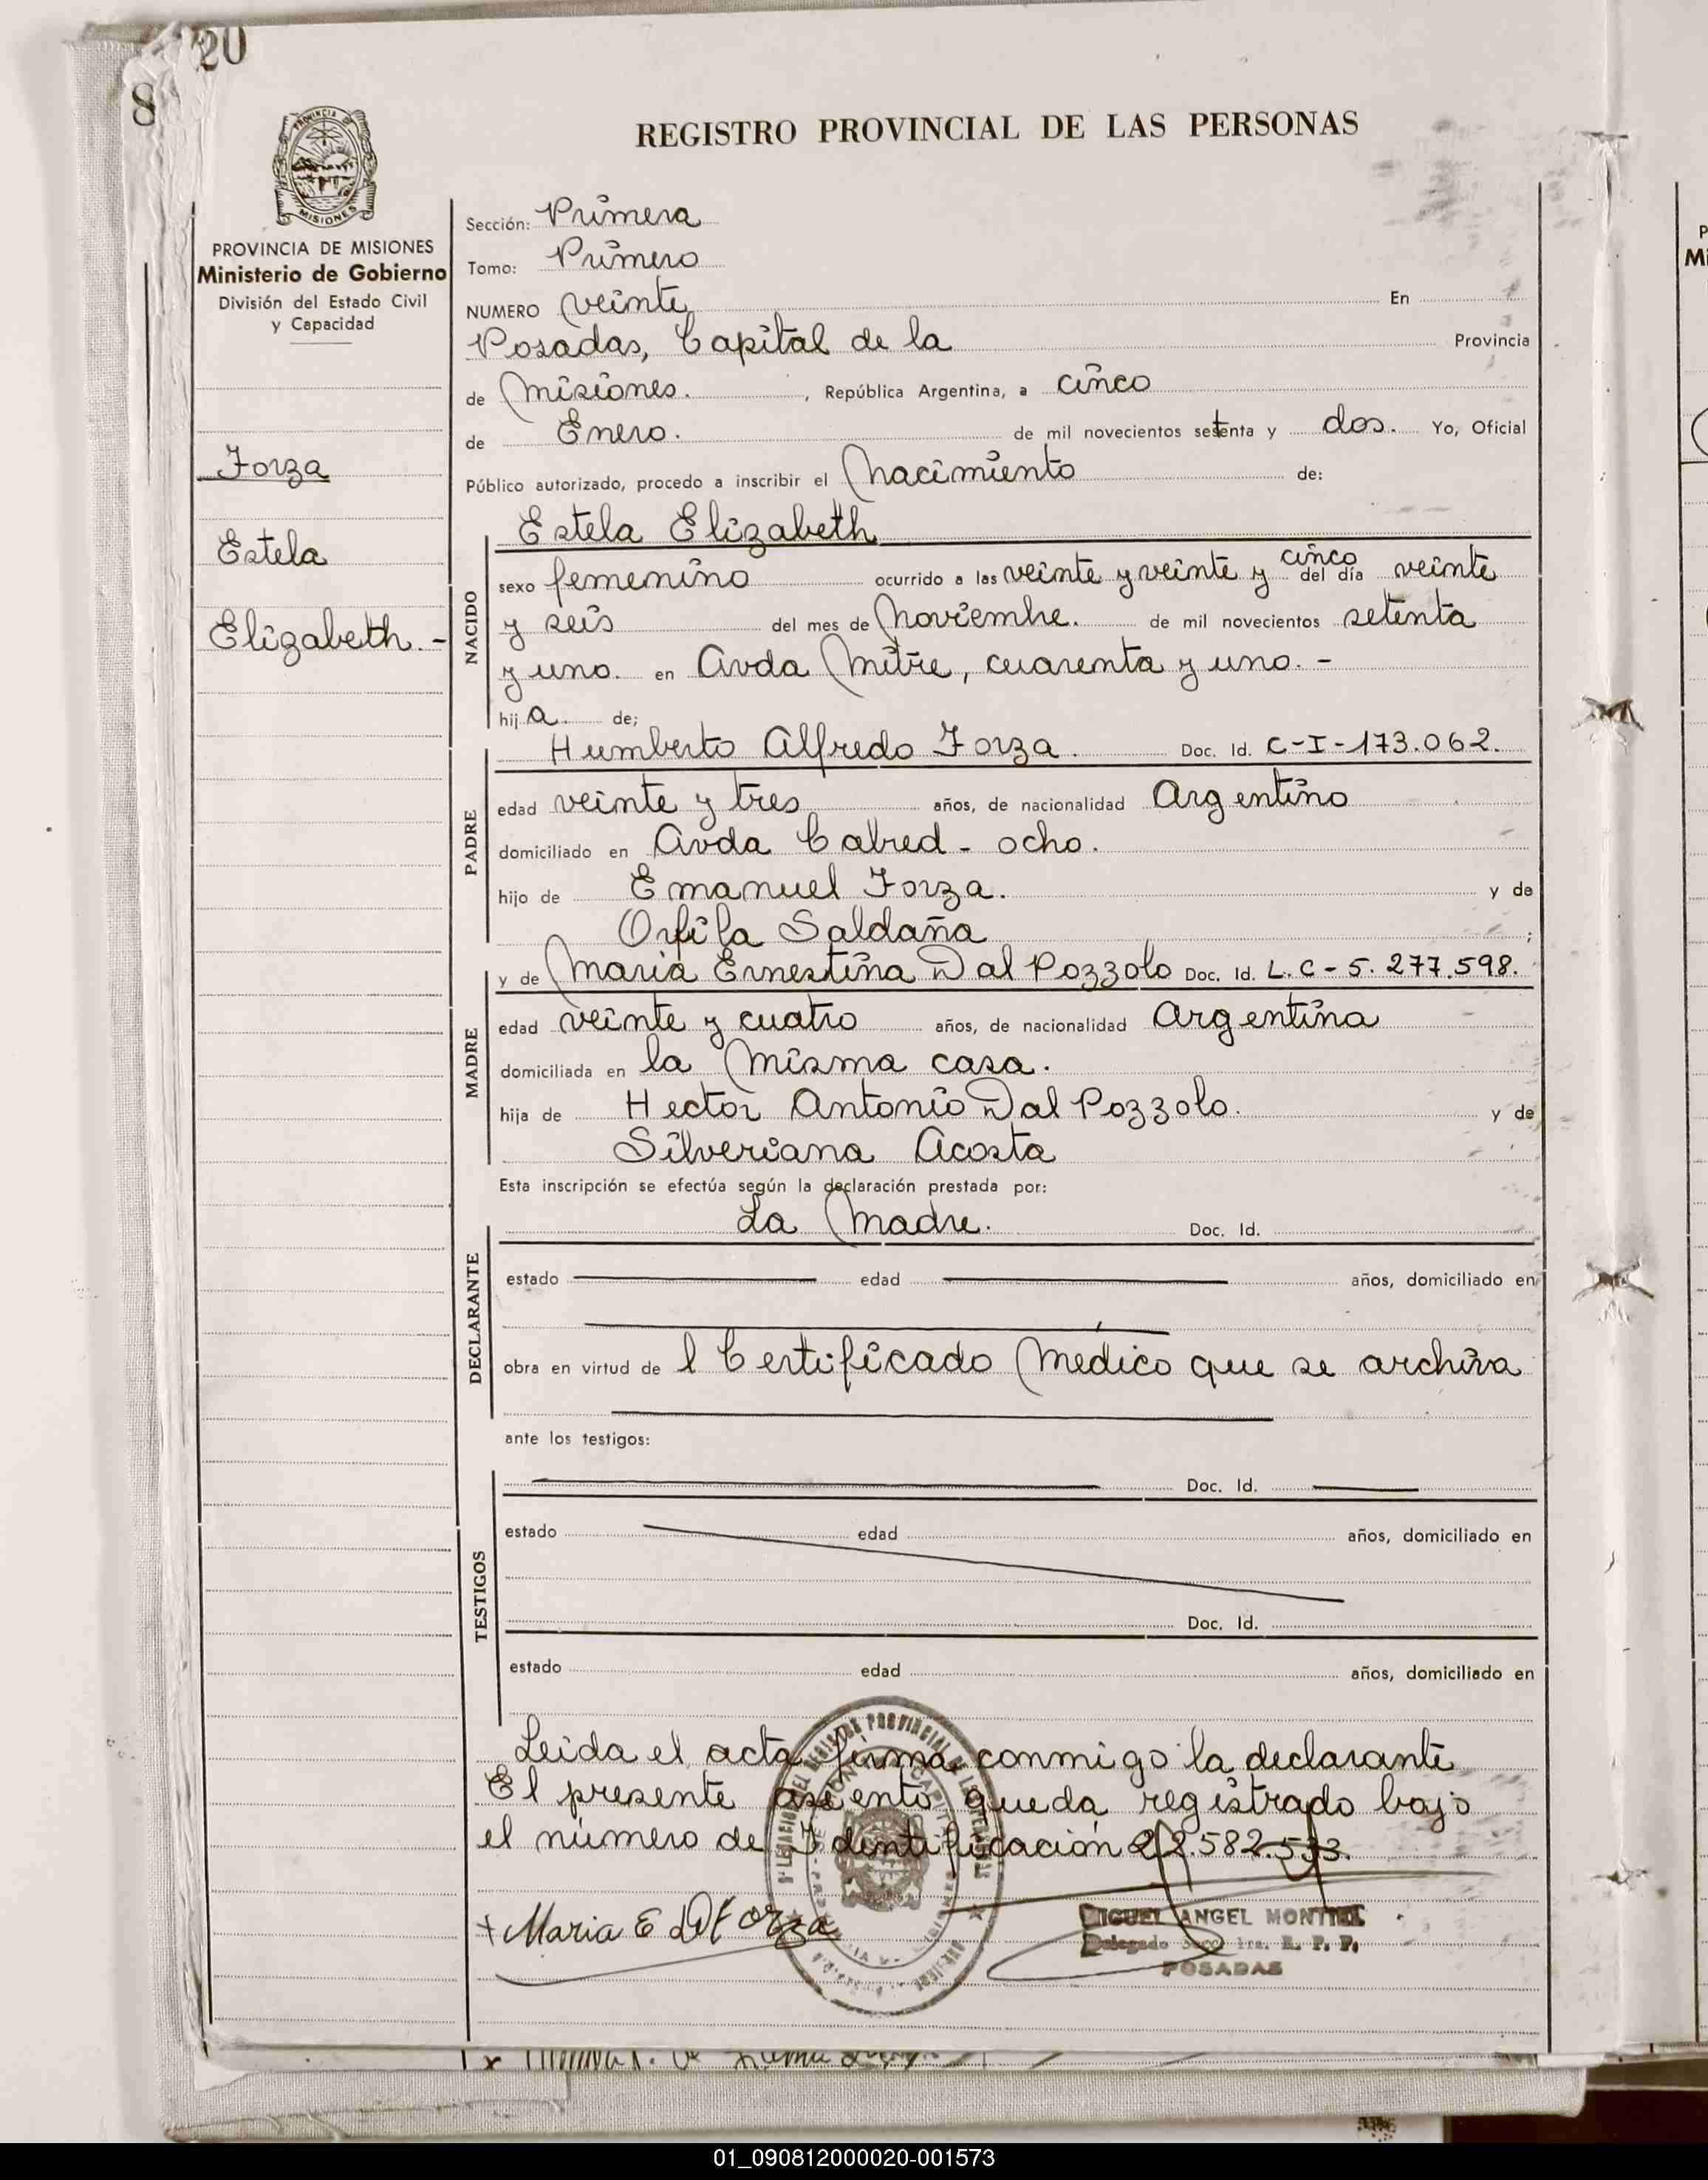 20
8
REGISTRO PROVINCIAL DE LAS PERSONAS
PROVINCIA DE
MISIONES
PROVINCIA DE MISIONES
Ministerio de Gobierno
División del Estado Civil
y Capacidad
Forza
Estela
Elizabeth. -
Sección: Primera
Tomo: Primero
NUMERO veinte En
Posadas, Capital de la Provincia
de Misiones. , República Argentina, a cinco
de Enero. de mil novecientos setenta y dos. Yo, Oficial
Público autorizado, procedo a inscribir el Nacimiento de:
Estela Elizabeth
NACIDO
sexo femenino ocurrido a las veinte y veinte y cinco del día veinte
y seis del mes de Noviembre. de mil novecientos setenta
y uno. en Avda Mitre, cuarenta y uno. -
hija. de;
Humberto Alfredo Forza. Doc. Id. C-I-173.062.
PADRE
edad veinte y tres años, de nacionalidad Argentino
domiciliado en Avda Cabred - ocho.
hijo de Emanuel Forza. y de
Orfila Saldaña ;
y de Maria Ernestina Dal Pozzolo Doc. Id. L.C - 5. 277.598.
MADRE
edad veinte y cuatro años, de nacionalidad Argentina
domiciliada en la misma casa.
hija de Hector Antonio Dal Pozzolo. y de
Silveriana Acosta
Esta inscripción se efectúa según la declaración prestada por:
La Madre. Doc. Id.
DECLARANTE
estado edad años, domiciliado en
obra en virtud de l Certificado Médico que se archiva
ante los testigos:
Doc. Id.
TESTIGOS
estado edad años, domiciliado en
Doc. Id.
estado edad años, domiciliado en
Leida el acta firma conmigo la declarante
El presente asiento queda registrado bajo
el número de Identificación 22.582.533.
+ Maria E d Forza
MIGUEL ANGEL MONTIEL
Delegado Secc 1ra. R. P. P.
POSADAS
01_090812000020-001573